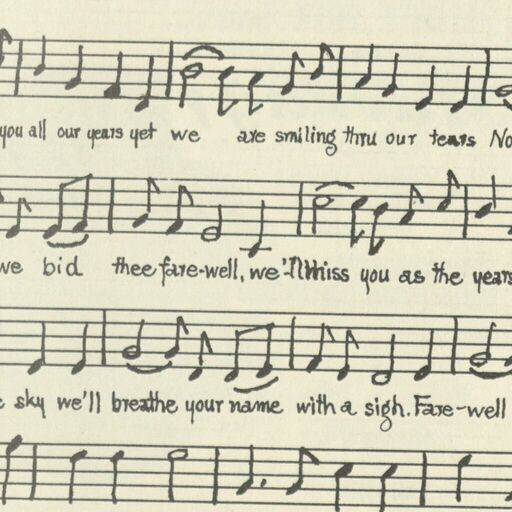 you all our years yet we are smiling thru our tears No
we bid thee fare-well, we'll miss you as the years
sky we'll breathe your name with a sigh. Fare-well